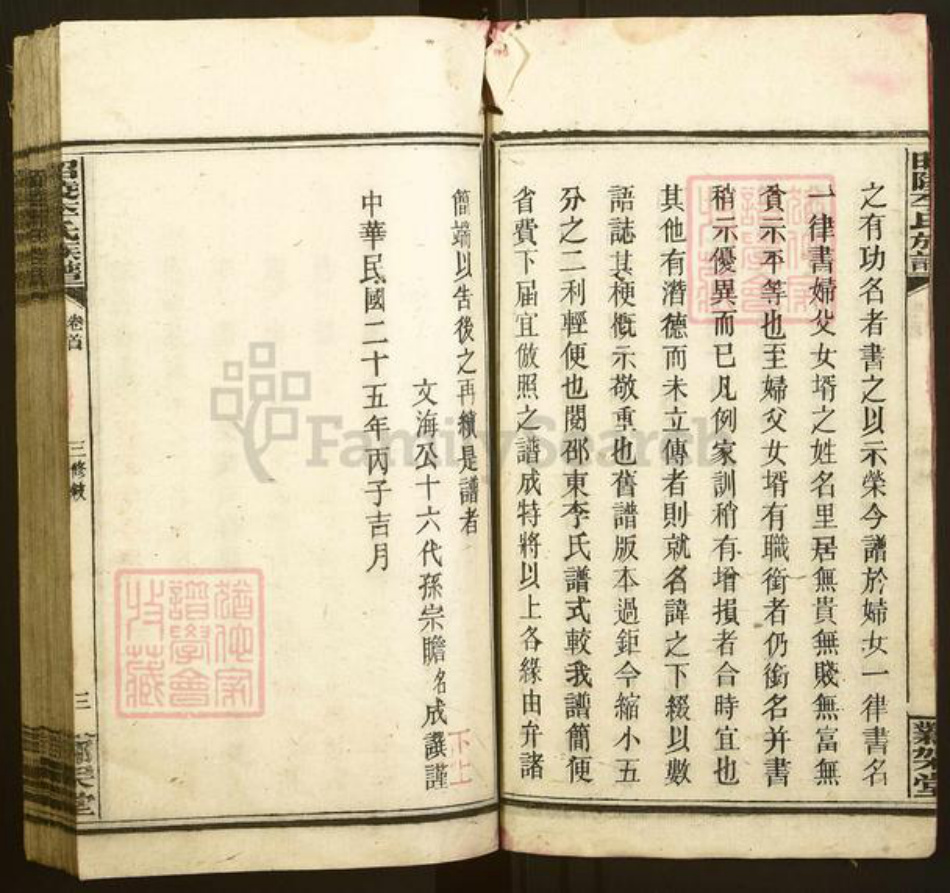 之有功名者書之以示榮今譜於婦女一律書名
一律書婦父女壻之姓名里居無貴無賤無富無
貧示平等也至婦父女壻有職銜者仍銜名并書
稍示優異而已凡例家訓稍有增損者合時宜也
其他有潛德而未立傳者則就名諱之下綴以數
語誌其梗概示敬重也舊譜版本過鉅今縮小五
分之二利輕便也閱邵東李氏譜式較我譜簡便
省費下届宜倣照之譜成特將以上各緣由弁諸
簡端以告後之再續是譜者
文海公十六代孫宗瞻名成譔謹
下上
中華民國二十五年丙子吉月
卷首
三修
三
收藏
譜學會
FamilySearch